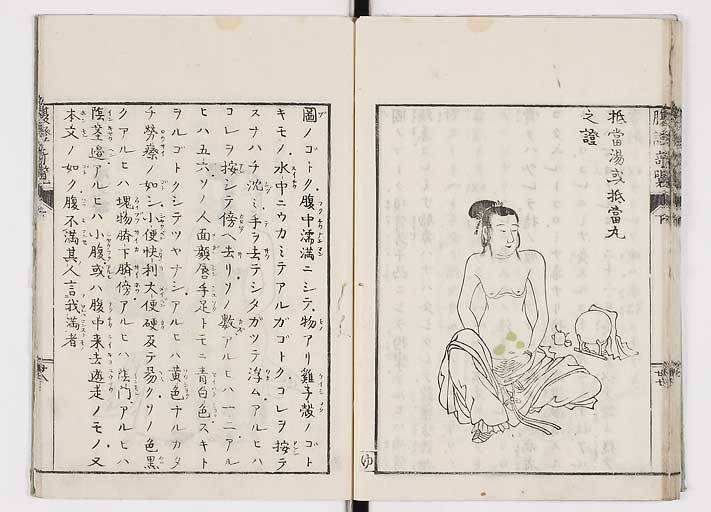 腹證奇覽 下
抵當湯或抵當丸
之證
ゆ
圖ノゴトク腹中濡滿ニシテ物アリ雞子殻ノゴト
キモノ水中ニウカミテアルガゴトクコレヲ按テ
スナハチ沈ミ手ヲ去テシタガツテ浮ムアルヒハ
コレヲ按シテ傍ヘ去リソノ數アルヒハ一二アル
ヒハ五六ソノ人面顔唇手足トモニ青白色スキト
ヲルゴトクシテツヤナシアルヒハ黄色ナルカタ
チ勞瘵ノ如シ小便快利大便硬反テ易クソノ色黒
クアルヒハ塊物臍下臍傍アルヒハ陰門アルヒハ
陰莖邉アルヒハ小腹或ハ腹中来去遊走ノモノ又
本文ノ如ク腹不滿其人言我滿者